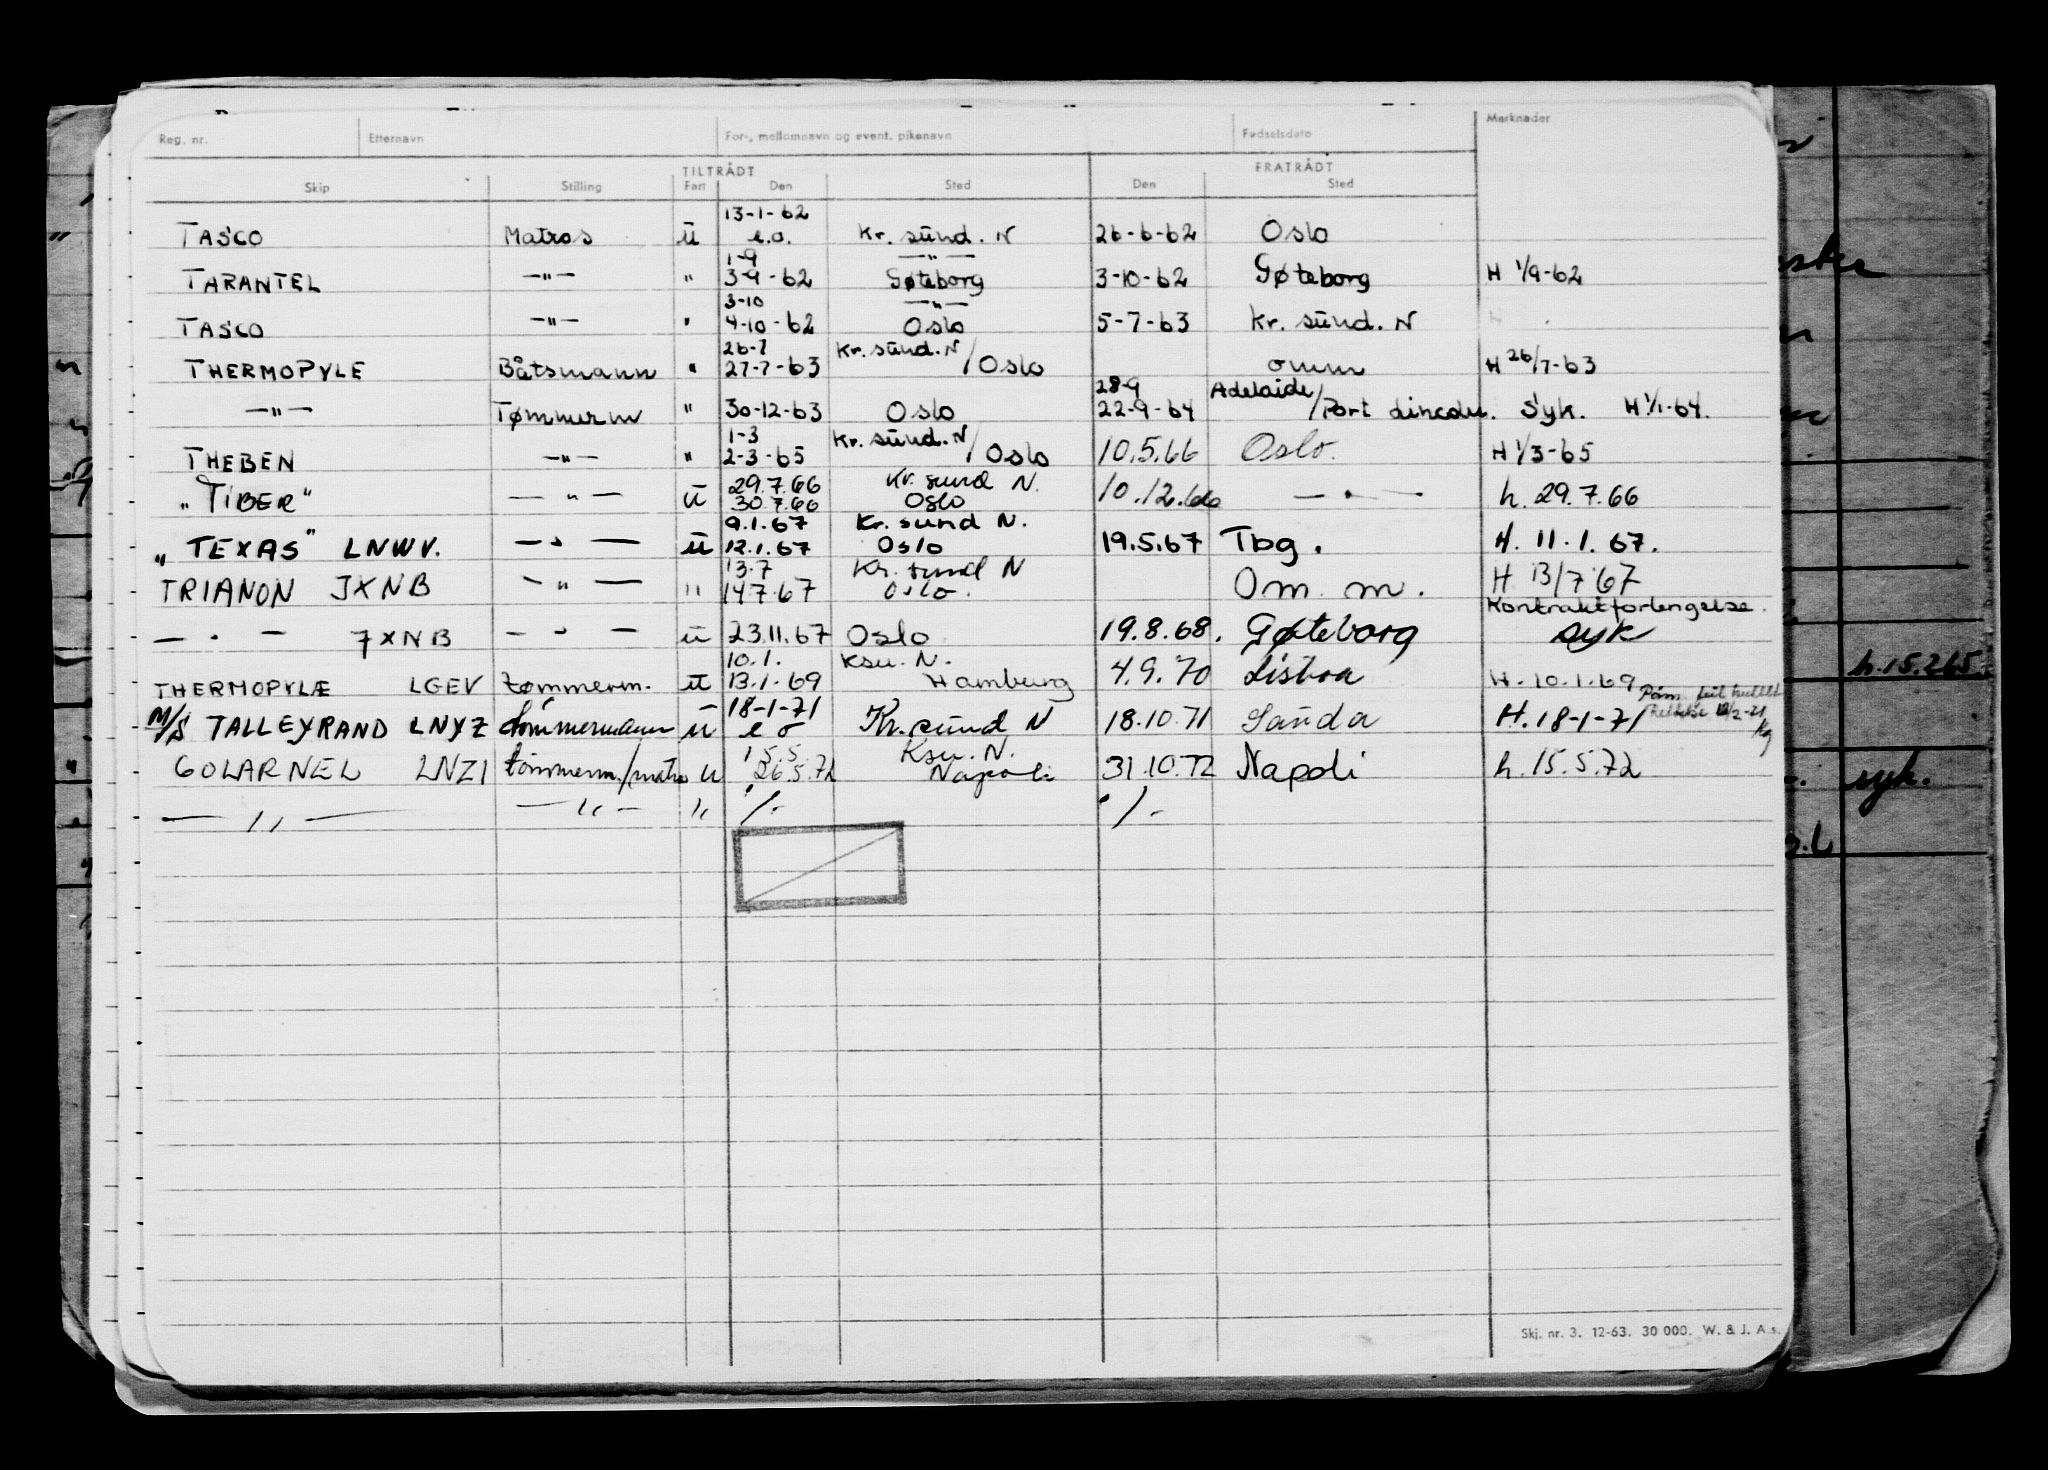 Reg. nr. Etternavn For-, mellomnavn og event. pikenavn Fødselsdato Merknader
TILTRÅDT FRATRÅDT
Skip Stilling Fart Den Sted Den Sted
13-1-62
TASCO Matros ū e.o. Kr. sund. N 26-6-62 Oslo
1-9 —"—
TARANTEL —"— " 3-9-62 Gøteborg 3-10-62 Gøteborg H 1/9-62
3-10 —"—
TASCO —"— " 4-10-62 Oslo 5-7-63 Kr. sund. N
26-7 Kr. sund. N
THERMOPYLE Båtsmann " 27-7-63 / Oslo omm H 26/7-63
28-9 Adelaide
—"— Tømmerm " 30-12-63 Oslo 22-9-64 / Port Lincoln. Syk. H 1/1-64.
1-3 Kr. sund. N
THEBEN —"— " 2-3-65 / Oslo 10.5.66 Oslo. H 1/3-65
29.7.66 Kr. sund N.
"TIBER" —"— ū 30.7.66 Oslo 10.12.66 —"— h. 29.7.66
9.1.67 Kr. sund N.
"TEXAS" LNWV. —"— ū 12.1.67 Oslo 19.5.67 Tbg. H. 11.1.67.
13.7 Kr. sund N
TRIANON JXNB —"— " 14.7.67 Oslo. Om. m. H 13/7 67
Kontraktforlengelse.
—"— JXNB —"— ū 23.11.67 Oslo 19.8.68. Gøteborg syk
10.1. Ksu. N.
THERMOPYLÆ LGEV tømmerm. ū 13.1.69 Hamburg 4.9.70 Lisboa H. 10.1.69
18-1-71
M/S TALLEYRAND LNYZ tømmermann ū e o Kr. sund N 18.10.71 Sauda H. 18-1-71
15.5. Ksu. N.
GOLAR NEL LNZI tømmerm./matr. u 26.5.72 Napoli 31.10.72 Napoli h. 15.5.72
—"— —"— " ./- ./-
Skj. nr. 3. 12-63. 30 000. W. & J. A s.
h. 15.2.65.
syk.